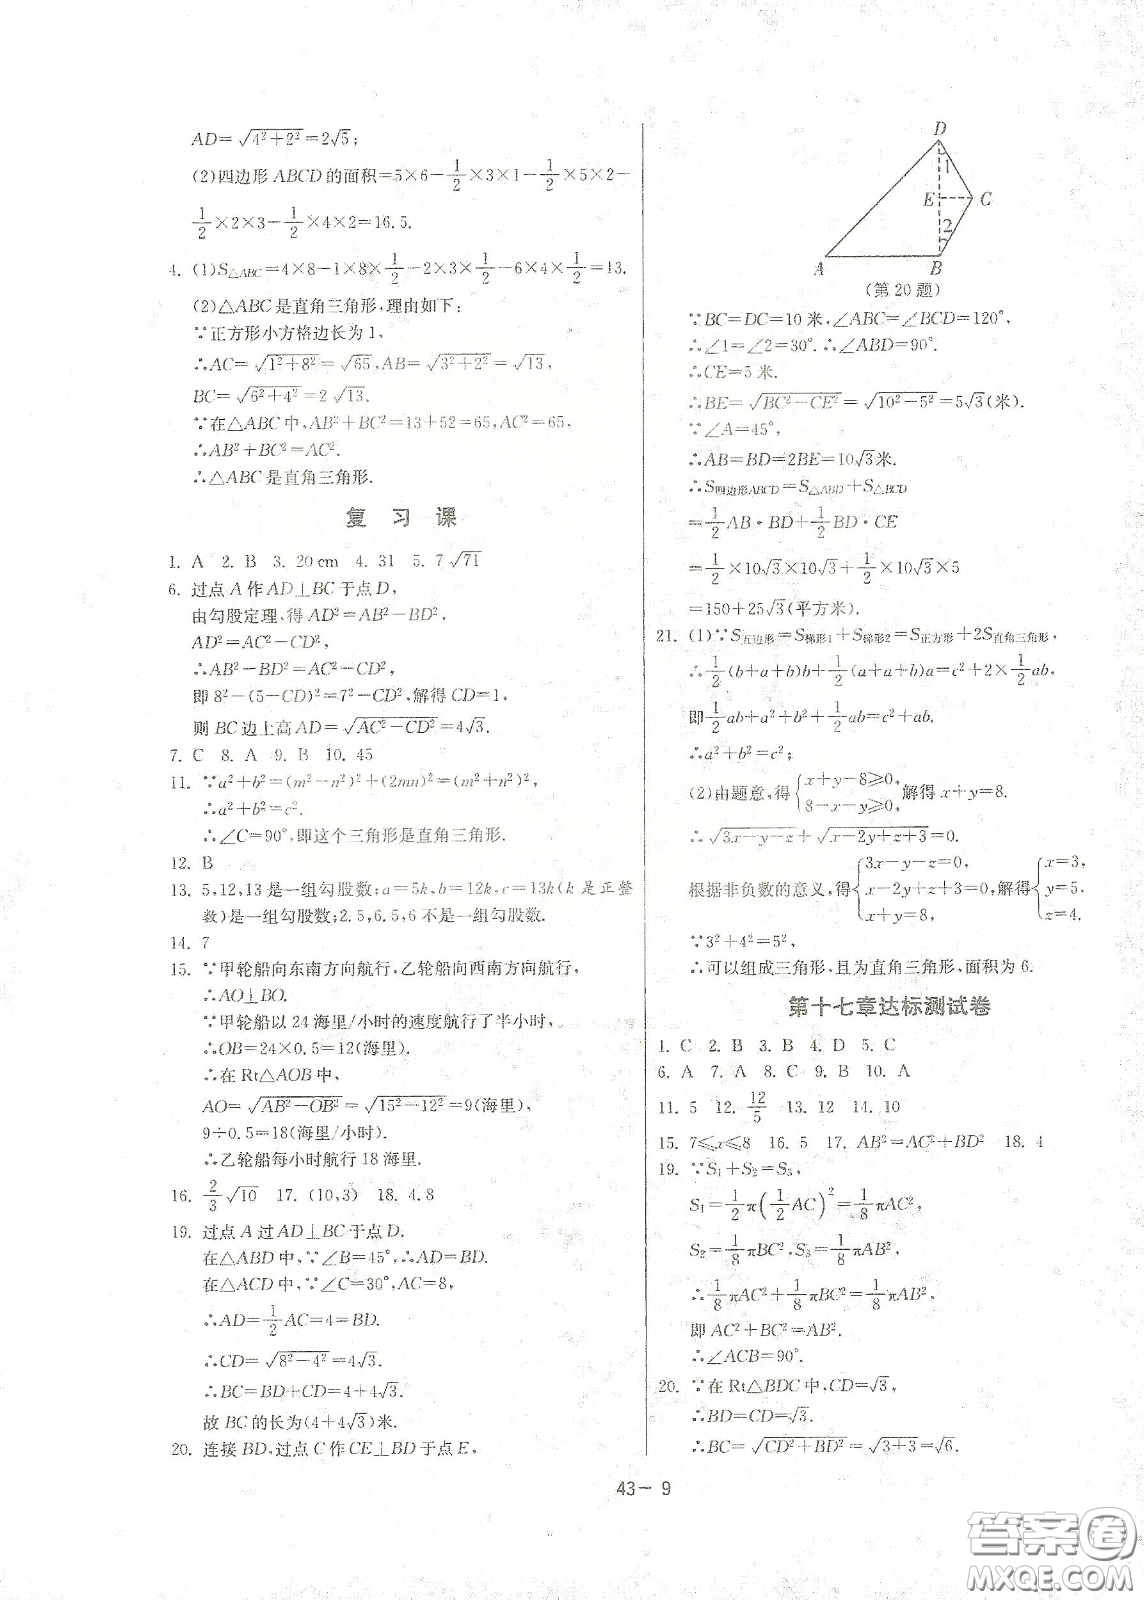 AD=√(4²+2²)=2√5;
(2)四边形ABCD的面积=5×6-1/2×3×1-1/2×5×2-
1/2×2×3-1/2×4×2=16.5.
4. (1)S△ABC=4×8-1×8×1/2-2×3×1/2-6×4×1/2=13.
(2)△ABC是直角三角形,理由如下:
∵正方形小方格边长为1,
∴AC=√(1²+8²)=√65,AB=√(3²+2²)=√13,
BC=√(6²+4²)=2√13.
∵在△ABC中,AB²+BC²=13+52=65,AC²=65,
∴AB²+BC²=AC².
∴△ABC是直角三角形.
复 习 课
1. A 2. B 3. 20 cm 4. 31 5. 7 √71
6. 过点A作AD⊥BC于点D,
由勾股定理,得AD²=AB²-BD²,
AD²=AC²-CD²,
∴AB²-BD²=AC²-CD²,
即8²-(5-CD)²=7²-CD²,解得CD=1,
则BC边上高AD=√(AC²-CD²)=4√3.
7. C 8. A 9. B 10. 45
11. ∵a²+b²=(m²-n²)²+(2mn)²=(m²+n²)²,
∴a²+b²=c².
∴∠C=90°,即这个三角形是直角三角形.
12. B
13. 5,12,13是一组勾股数;a=5k,b=12k,c=13k(k是正整
数)是一组勾股数;2.5,6.5,6不是一组勾股数.
14. 7
15. ∵甲轮船向东南方向航行,乙轮船向西南方向航行,
∴AO⊥BO.
∵甲轮船以24海里/小时的速度航行了半小时,
∴OB=24×0.5=12(海里).
∴在Rt△AOB中,
AO=√(AB²-OB²)=√(15²-12²)=9(海里),
9÷0.5=18(海里/小时).
∴乙轮船每小时航行18海里.
16. 2/3√10 17. (10,3) 18. 4.8
19. 过点A过AD⊥BC于点D.
在△ABD中,∵∠B=45°,∴AD=BD.
在△ACD中,∵∠C=30°,AC=8,
∴AD=1/2AC=4=BD.
∴CD=√(8²-4²)=4√3.
∴BC=BD+CD=4+4√3.
故BC的长为(4+4√3)米.
20. 连接BD,过点C作CE⊥BD于点E,
D
1
E
C
2
A
B
(第20题)
∵BC=DC=10米,∠ABC=∠BCD=120°,
∴∠1=∠2=30°.∴∠ABD=90°.
∴CE=5米.
∴BE=√(BC²-CE²)=√(10²-5²)=5√3(米).
∵∠A=45°,
∴AB=BD=2BE=10√3米.
∴S四边形ABCD=S△ABD+S△BCD
=1/2AB·BD+1/2BD·CE
=1/2×10√3×10√3+1/2×10√3×5
=150+25√3(平方米).
21. (1)∵S五边形=S梯形1+S梯形2=S正方形+2S直角三角形,
∴1/2(b+a+b)b+1/2(a+a+b)a=c²+2×1/2ab,
即1/2ab+a²+b²+1/2ab=c²+ab.
∴a²+b²=c²;
(2)由题意,得{x+y-8≥0, 8-x-y≥0,解得x+y=8.
∴√(3x-y-z)+√(x-2y+z+3)=0.
根据非负数的意义,得{3x-y-z=0, x-2y+z+3=0, x+y=8,解得{x=3, y=5, z=4.
∵3²+4²=5²,
∴可以组成三角形,且为直角三角形,面积为6.
第十七章达标测试卷
1. C 2. B 3. B 4. D 5. C
6. A 7. A 8. C 9. B 10. A
11. 5 12. 12/5 13. 12 14. 10
15. 7≤x≤8 16. 5 17. AB²=AC²+BD² 18. 4
19. ∵S₁+S₂=S₃,
S₁=1/2π(1/2AC)²=1/8πAC²,
S₂=1/8πBC²,S₃=1/8πAB²,
∴1/8πAC²+1/8πBC²=1/8πAB²,
即AC²+BC²=AB².
∴∠ACB=90°.
20. ∵在Rt△BDC中,CD=√3,
∴BD=CD=√3.
∴BC=√(CD²+BD²)=√(3+3)=√6.
43- 9
答案圈
MXQE.COM